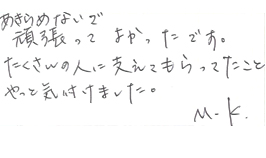 あきらめないで
頑張って よかったです。
たくさんの人に支えてもらってたこと
やっと気付けました。
M-K.